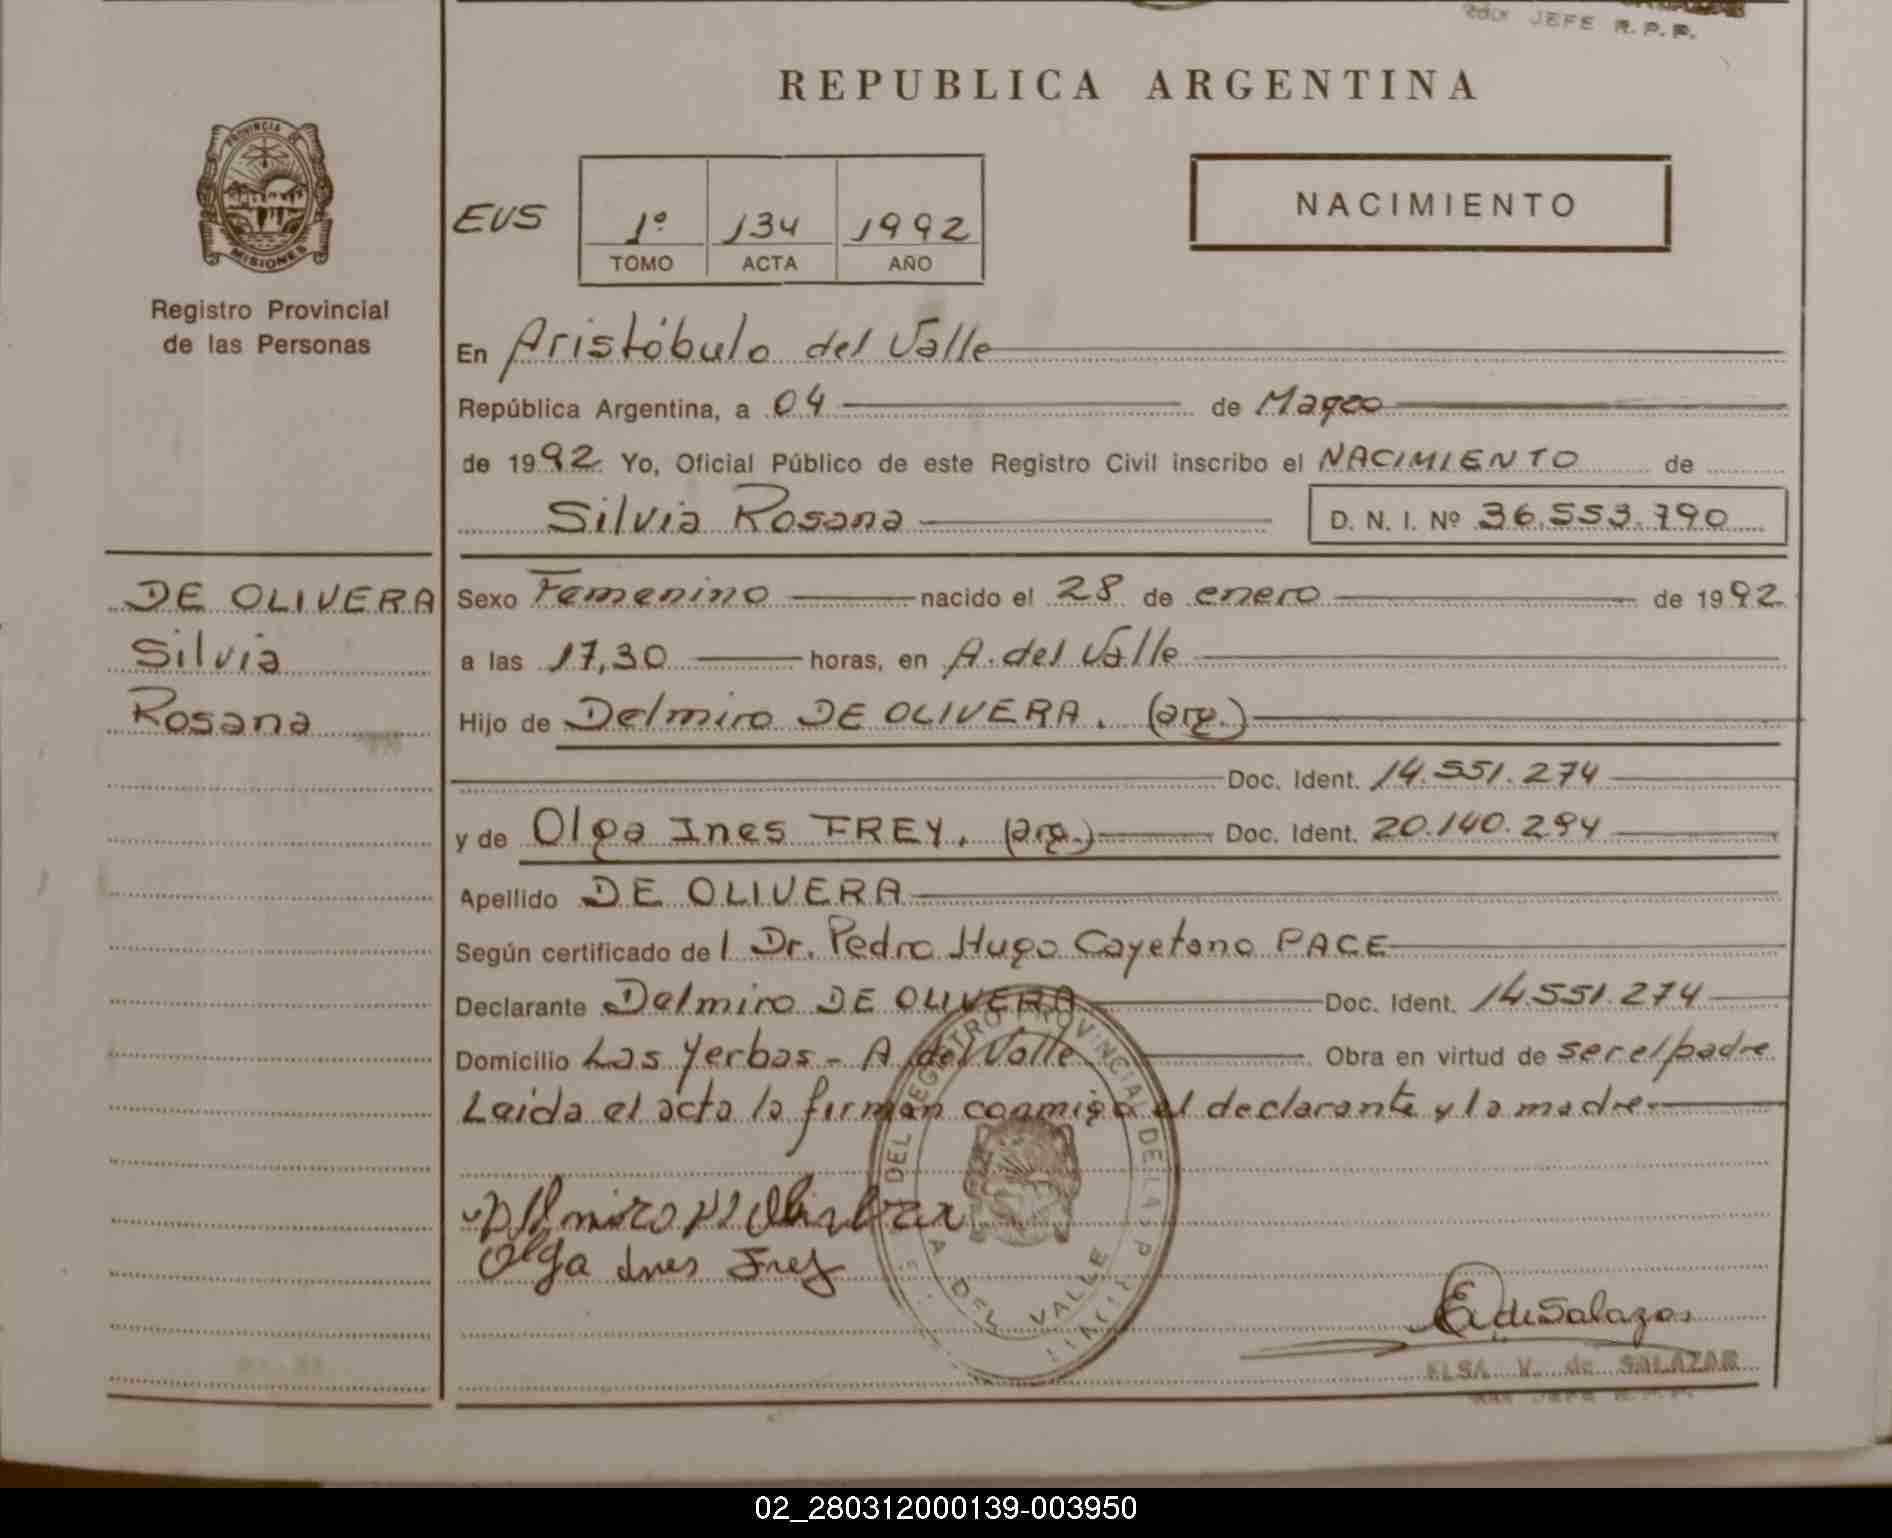 JEFE R.P.P.
REPUBLICA ARGENTINA
PROVINCIA DE
MISIONES
Registro Provincial
de las Personas
EVS
1º 134 1992
TOMO ACTA AÑO
NACIMIENTO
En Aristóbulo del Valle
República Argentina, a 04 de Marzo
de 1992 Yo, Oficial Público de este Registro Civil inscribo el NACIMIENTO de
Silvia Rosana D. N. I. Nº 36.553.790
DE OLIVERA
Silvia
Rosana
Sexo Femenino nacido el 28 de enero de 1992
a las 17,30 horas, en A. del Valle
Hijo de Delmiro DE OLIVERA. (arg.)
Doc. Ident. 14.551.274
y de Olga Ines FREY. (arg.) Doc. Ident. 20.140.294
Apellido DE OLIVERA
Según certificado del Dr. Pedro Hugo Cayetano PACE
Declarante Delmiro DE OLIVERA Doc. Ident. 14.551.274
Domicilio Las Yerbas - A. del Valle Obra en virtud de ser el padre
Leida el acta la firman conmigo el declarante y la madre
DEL REGISTRO PROVINCIAL DE LA P
A DEL VALLE
Delmiro de Oliveira
Olga Ines Frey
E de Salazar
ELSA V. de SALAZAR
JEFE R.P.P.
02_280312000139-003950